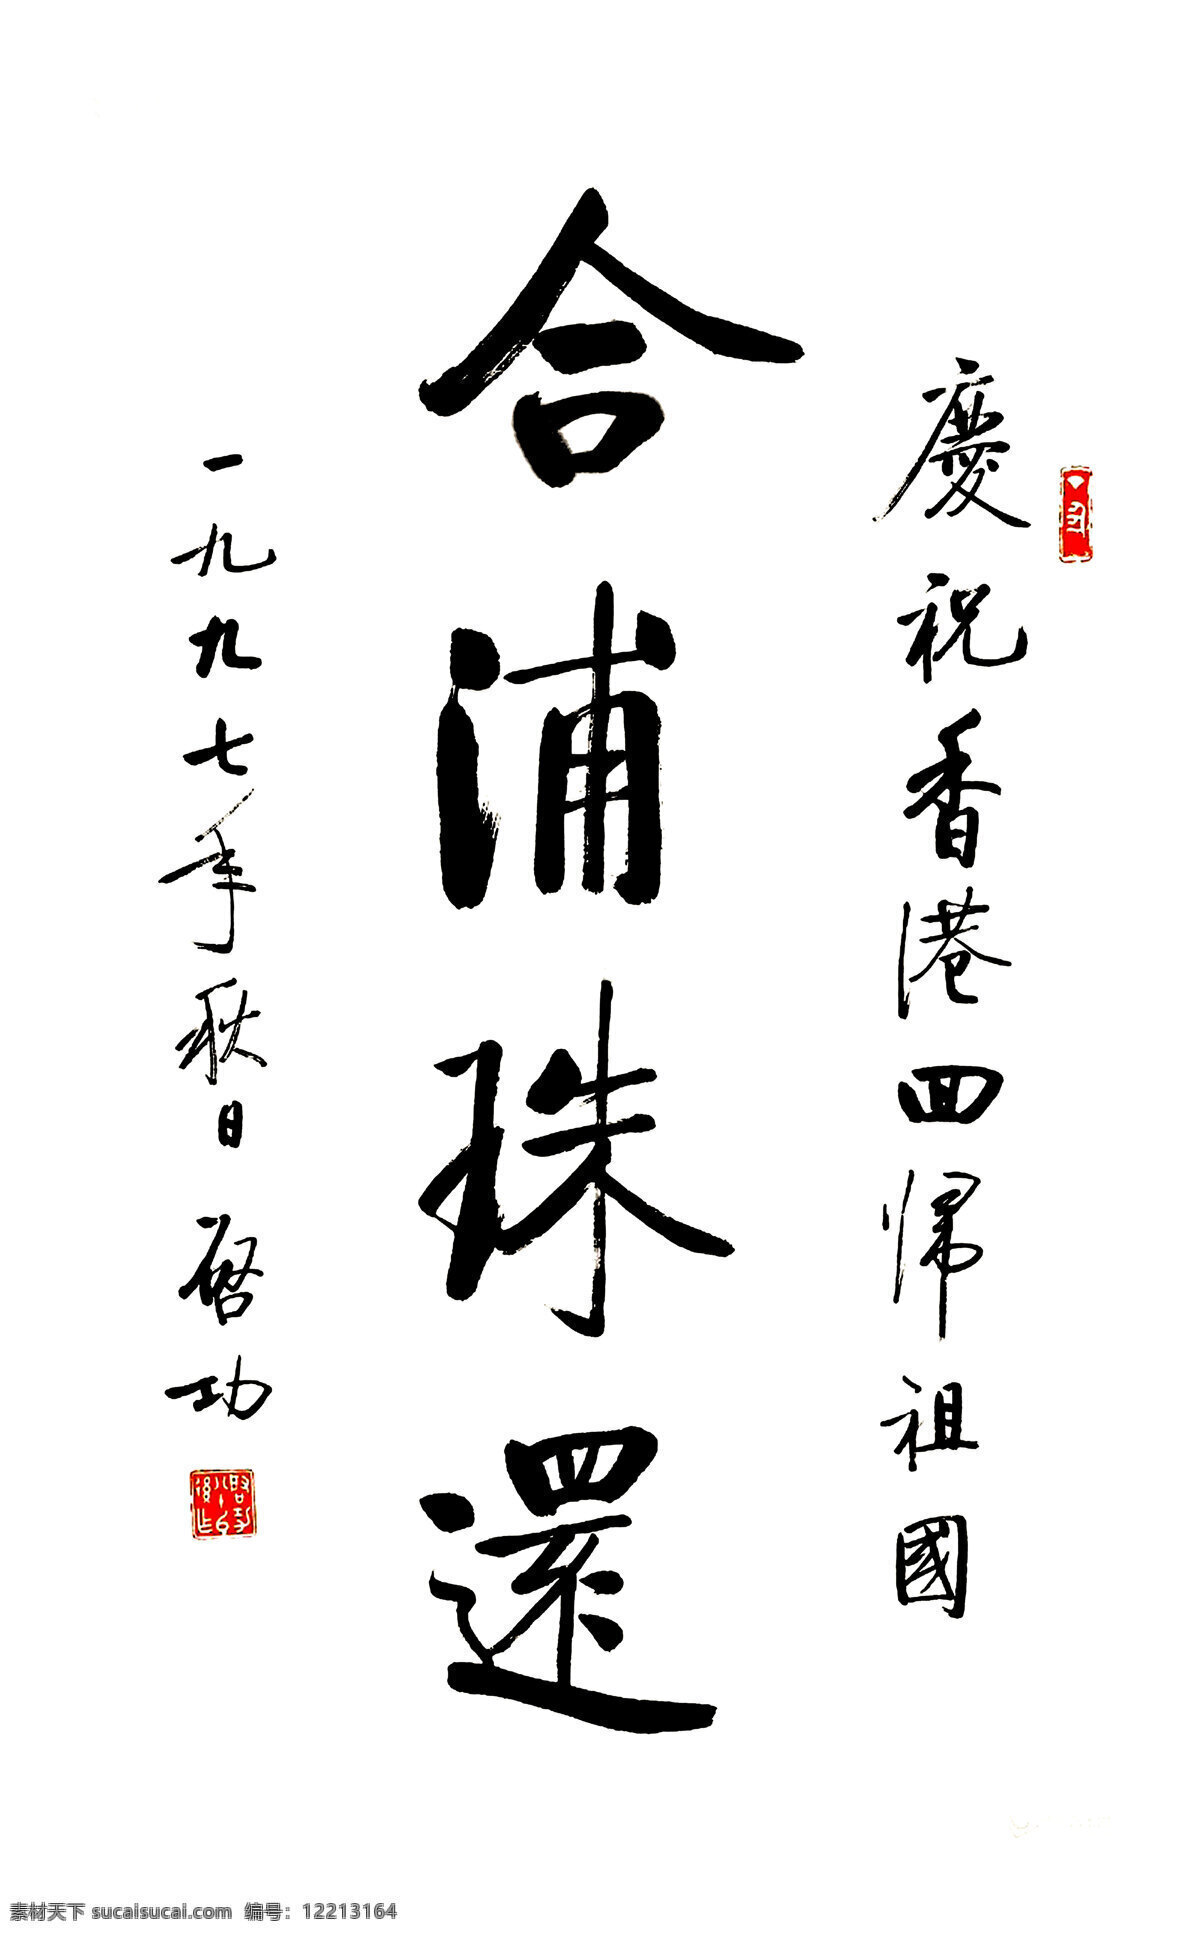 慶祝香港回歸祖國
合浦珠還
一九九七年秋日 啓功
素材天下 sucaisucai.com 编号：12213164